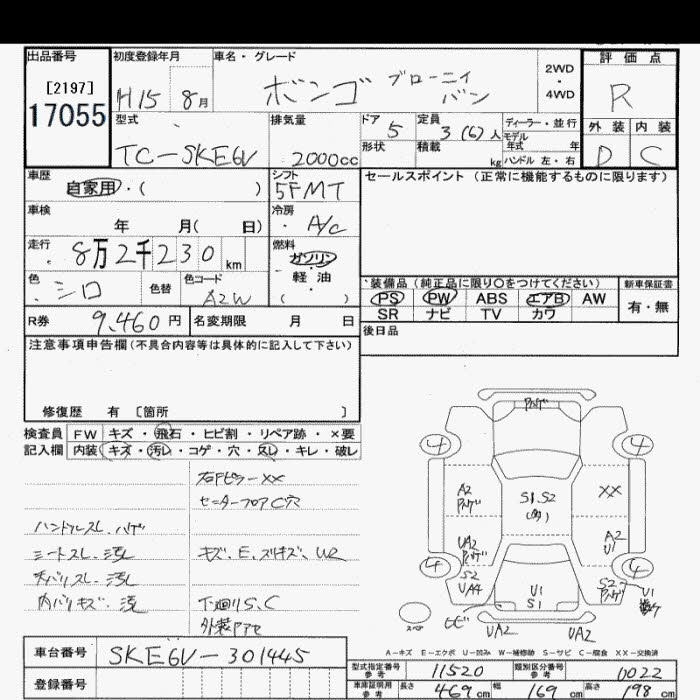 出品番号
[2197]
17055
初度登録年月
H15 8月
車名・グレード
ボンゴ ブローニィ バン
2WD
・
4WD
評価点
R
外装 内装
D C
型式
TC-SKE6V
排気量
2000cc
ドア
5
定員
3(6)人
形状
積載
kg
ディーラー・並行
モデル
年式 年
ハンドル 左・右
車歴
自家用・( )
シフト
5FMT
セールスポイント (正常に機能するものに限ります)
車検
年 月( 日)
冷房
A/C
走行
8万2千230km
燃料
ガソリン
・
軽油
( )
色
シロ
色替
色コード
A2W
装備品(純正品に限り〇をつけてください)
新車保証書
PS PW ABS エアB AW
有・無
SR ナビ TV カワ
R券
9,460円
名変期限 月 日
後日品
注意事項申告欄(不具合内容等は具体的に記入して下さい)
修復歴 有 〔箇所 〕
検査員
記入欄
FW キズ・飛石・ヒビ割・リペア跡・×要
内装 キズ・汚レ・コゲ・穴・スレ・キレ・破レ
右Fピラー××
センターフロアC穴
ハンドルスレ.ハゲ
シートスレ.汚レ
キズ、E、スリキズ、U2
天バリスレ.汚レ
内バリキズ.汚
下廻りS、C
外装Pアセ
Pハゲ
4 4
A2
Pハゲ
S1.S2
(多)
××
UA2
Pハゲ
A2
U1
4 4
S2
UA4
U1
S1
S2
Pハゲ
U1
ヒビ
スペア
UA2 UA2
A-キズ E-エクボ U-凹み W-補修跡 S-サビ C-腐食 XX-交換済
車台番号
SKE6V-301445
登録番号
型式指定番号
参考
11520
類別区分番号
参考
0022
車庫証明用
参考
長さ 469cm
幅 169cm
高さ 198cm